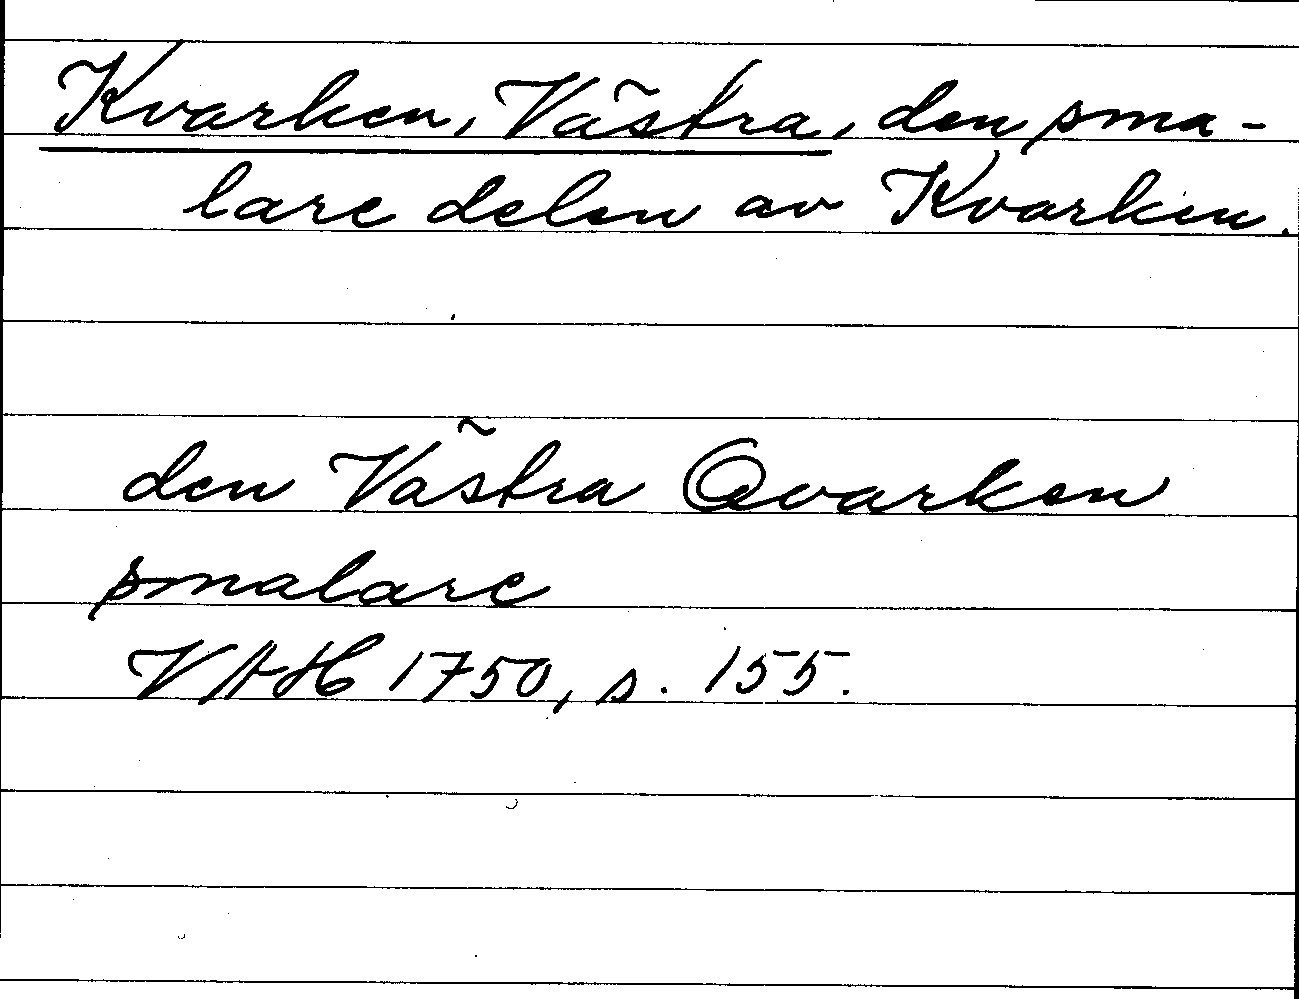 Kvarken, Västra, den sma-
lare delen av Kvarken.
den Västra Qvarken
smalare
VAH 1750, s. 155.